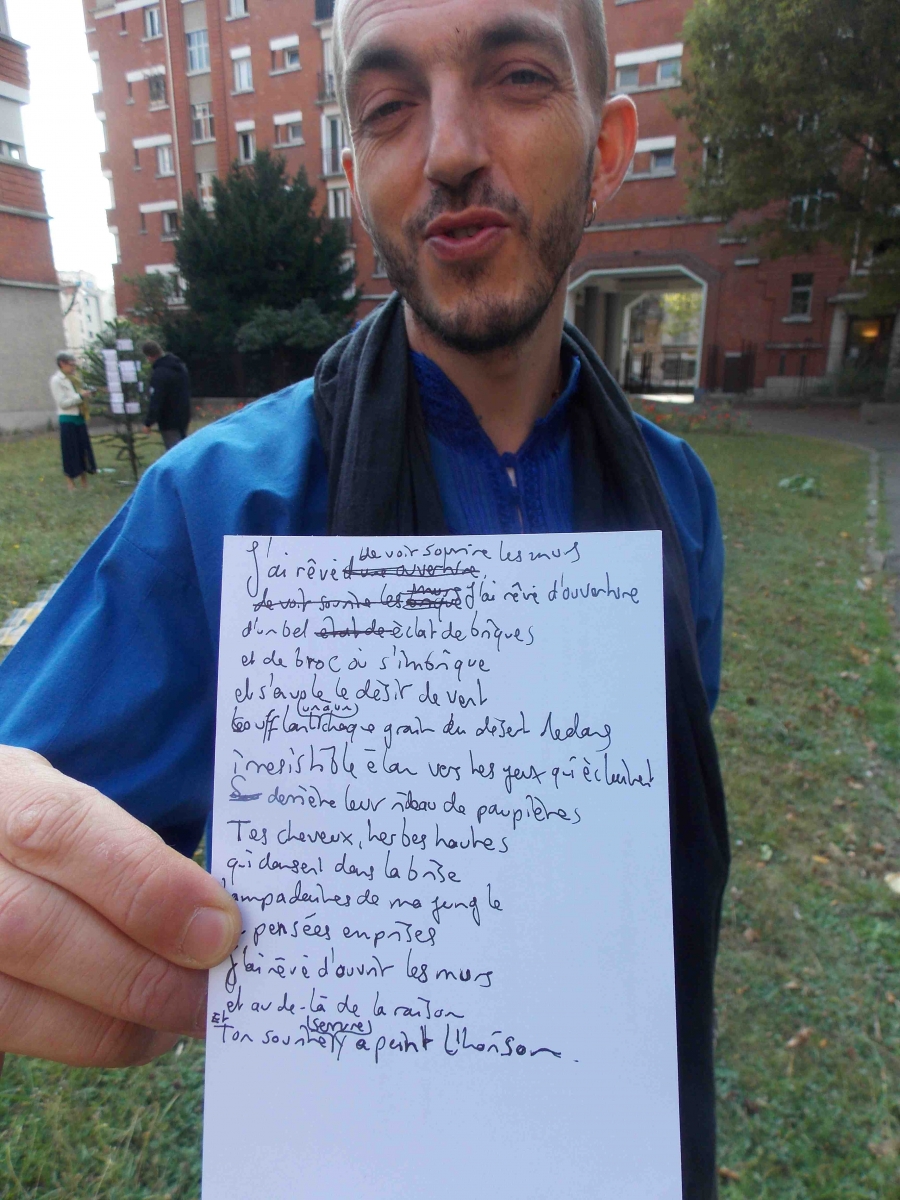 J'ai rêvé d'une ouverture de voir sourire les murs
de voir sourire les brique murs J'ai rêvé d'ouverture
d'un bel éclat de briques
et de broc où s'imbrique
et s'avole le désir de vent
chaque grain du désert dedans
irrésistible élan vers tes yeux qui éclairent
derrière leur rideau de paupières
Tes cheveux, herbes hautes
qui dansent dans la brise
de ma jungle
pensées emprises
J'ai rêvé d'ouvrir les murs
et au de-là de la raison
Et Ton sourire (serrure) y a peint l'horison.